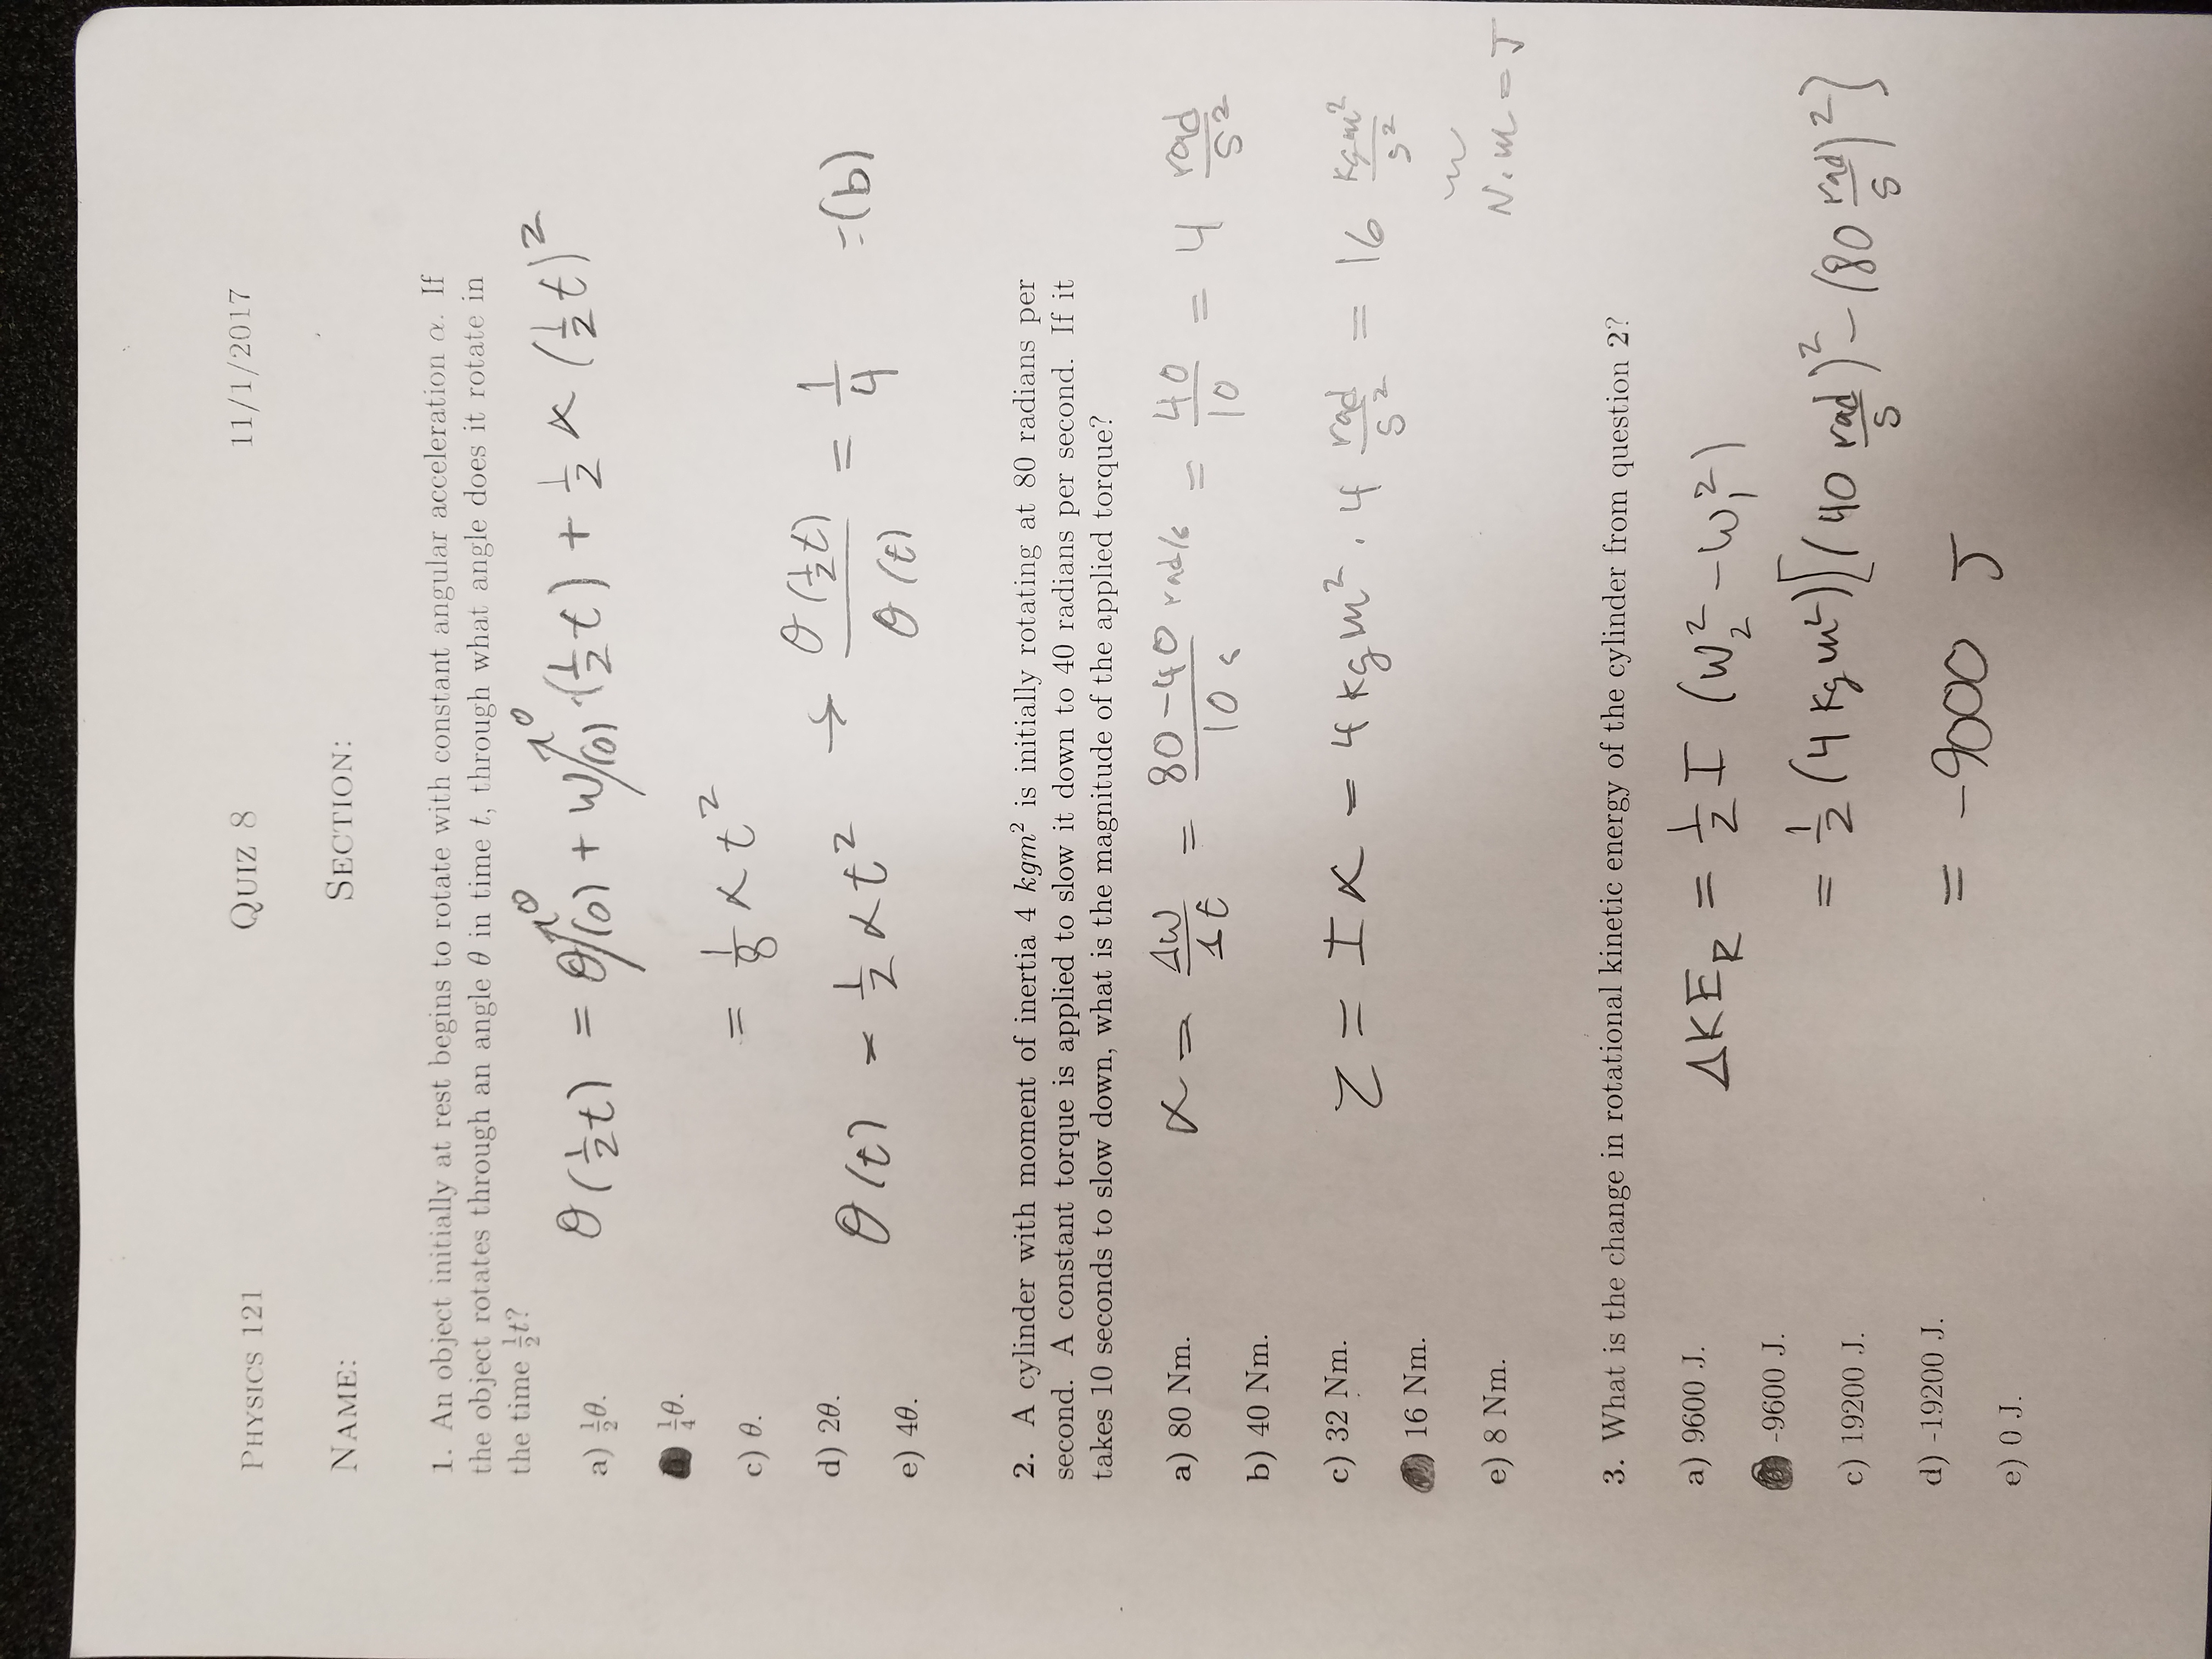 PHYSICS 121 QUIZ 8 11/1/2017
NAME: SECTION:
1. An object initially at rest begins to rotate with constant angular acceleration α. If
the object rotates through an angle θ in time t, through what angle does it rotate in
the time ½t?
θ(½t) = θ(0)↗0 + ω(0)↗0 · (½t) + ½ α (½t)²
a) ½θ.
¼θ.
= ⅛ α t²
c) θ.
d) 2θ.
θ(t) = ½ α t² → θ(½t)/θ(t) = 1/4 =(b)
e) 4θ.
2. A cylinder with moment of inertia 4 kgm² is initially rotating at 80 radians per
second. A constant torque is applied to slow it down to 40 radians per second. If it
takes 10 seconds to slow down, what is the magnitude of the applied torque?
a) 80 Nm.
α = Δω/Δt = 80-40 rad/s / 10 s = 40/10 = 4 rad/s²
b) 40 Nm.
c) 32 Nm.
τ = Iα = 4 kgm² · 4 rad/s² = 16 kgm²/s²
16 Nm.
e) 8 Nm.
N·m = J
3. What is the change in rotational kinetic energy of the cylinder from question 2?
a) 9600 J.
ΔKE_R = ½ I (ω₂² - ω₁²)
-9600 J.
= ½ (4 kgm²)[(40 rad/s)² - (80 rad/s)²]
c) 19200 J.
d) -19200 J.
= -9000 J
e) 0 J.